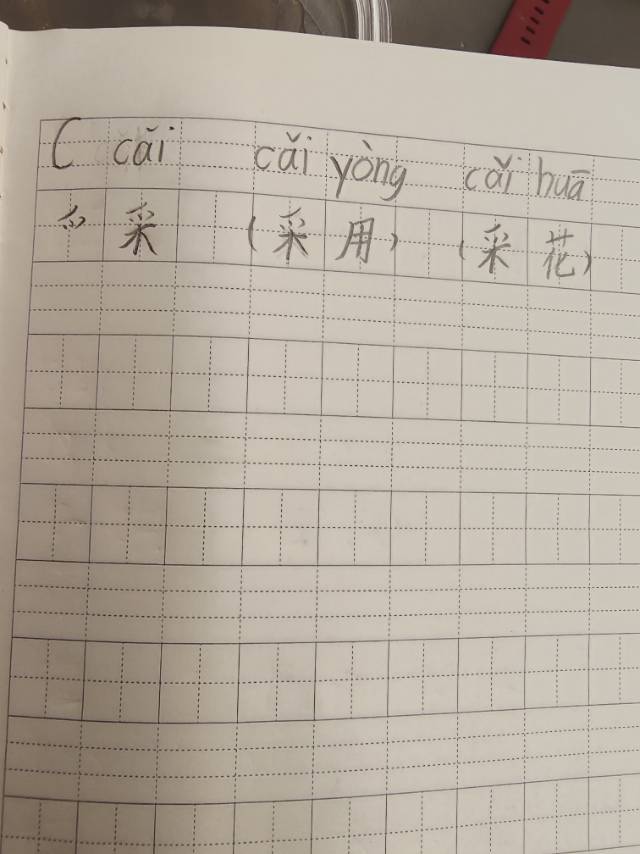 C cǎi cǎi yòng cǎi huā
爫 采 (采用) (采花)